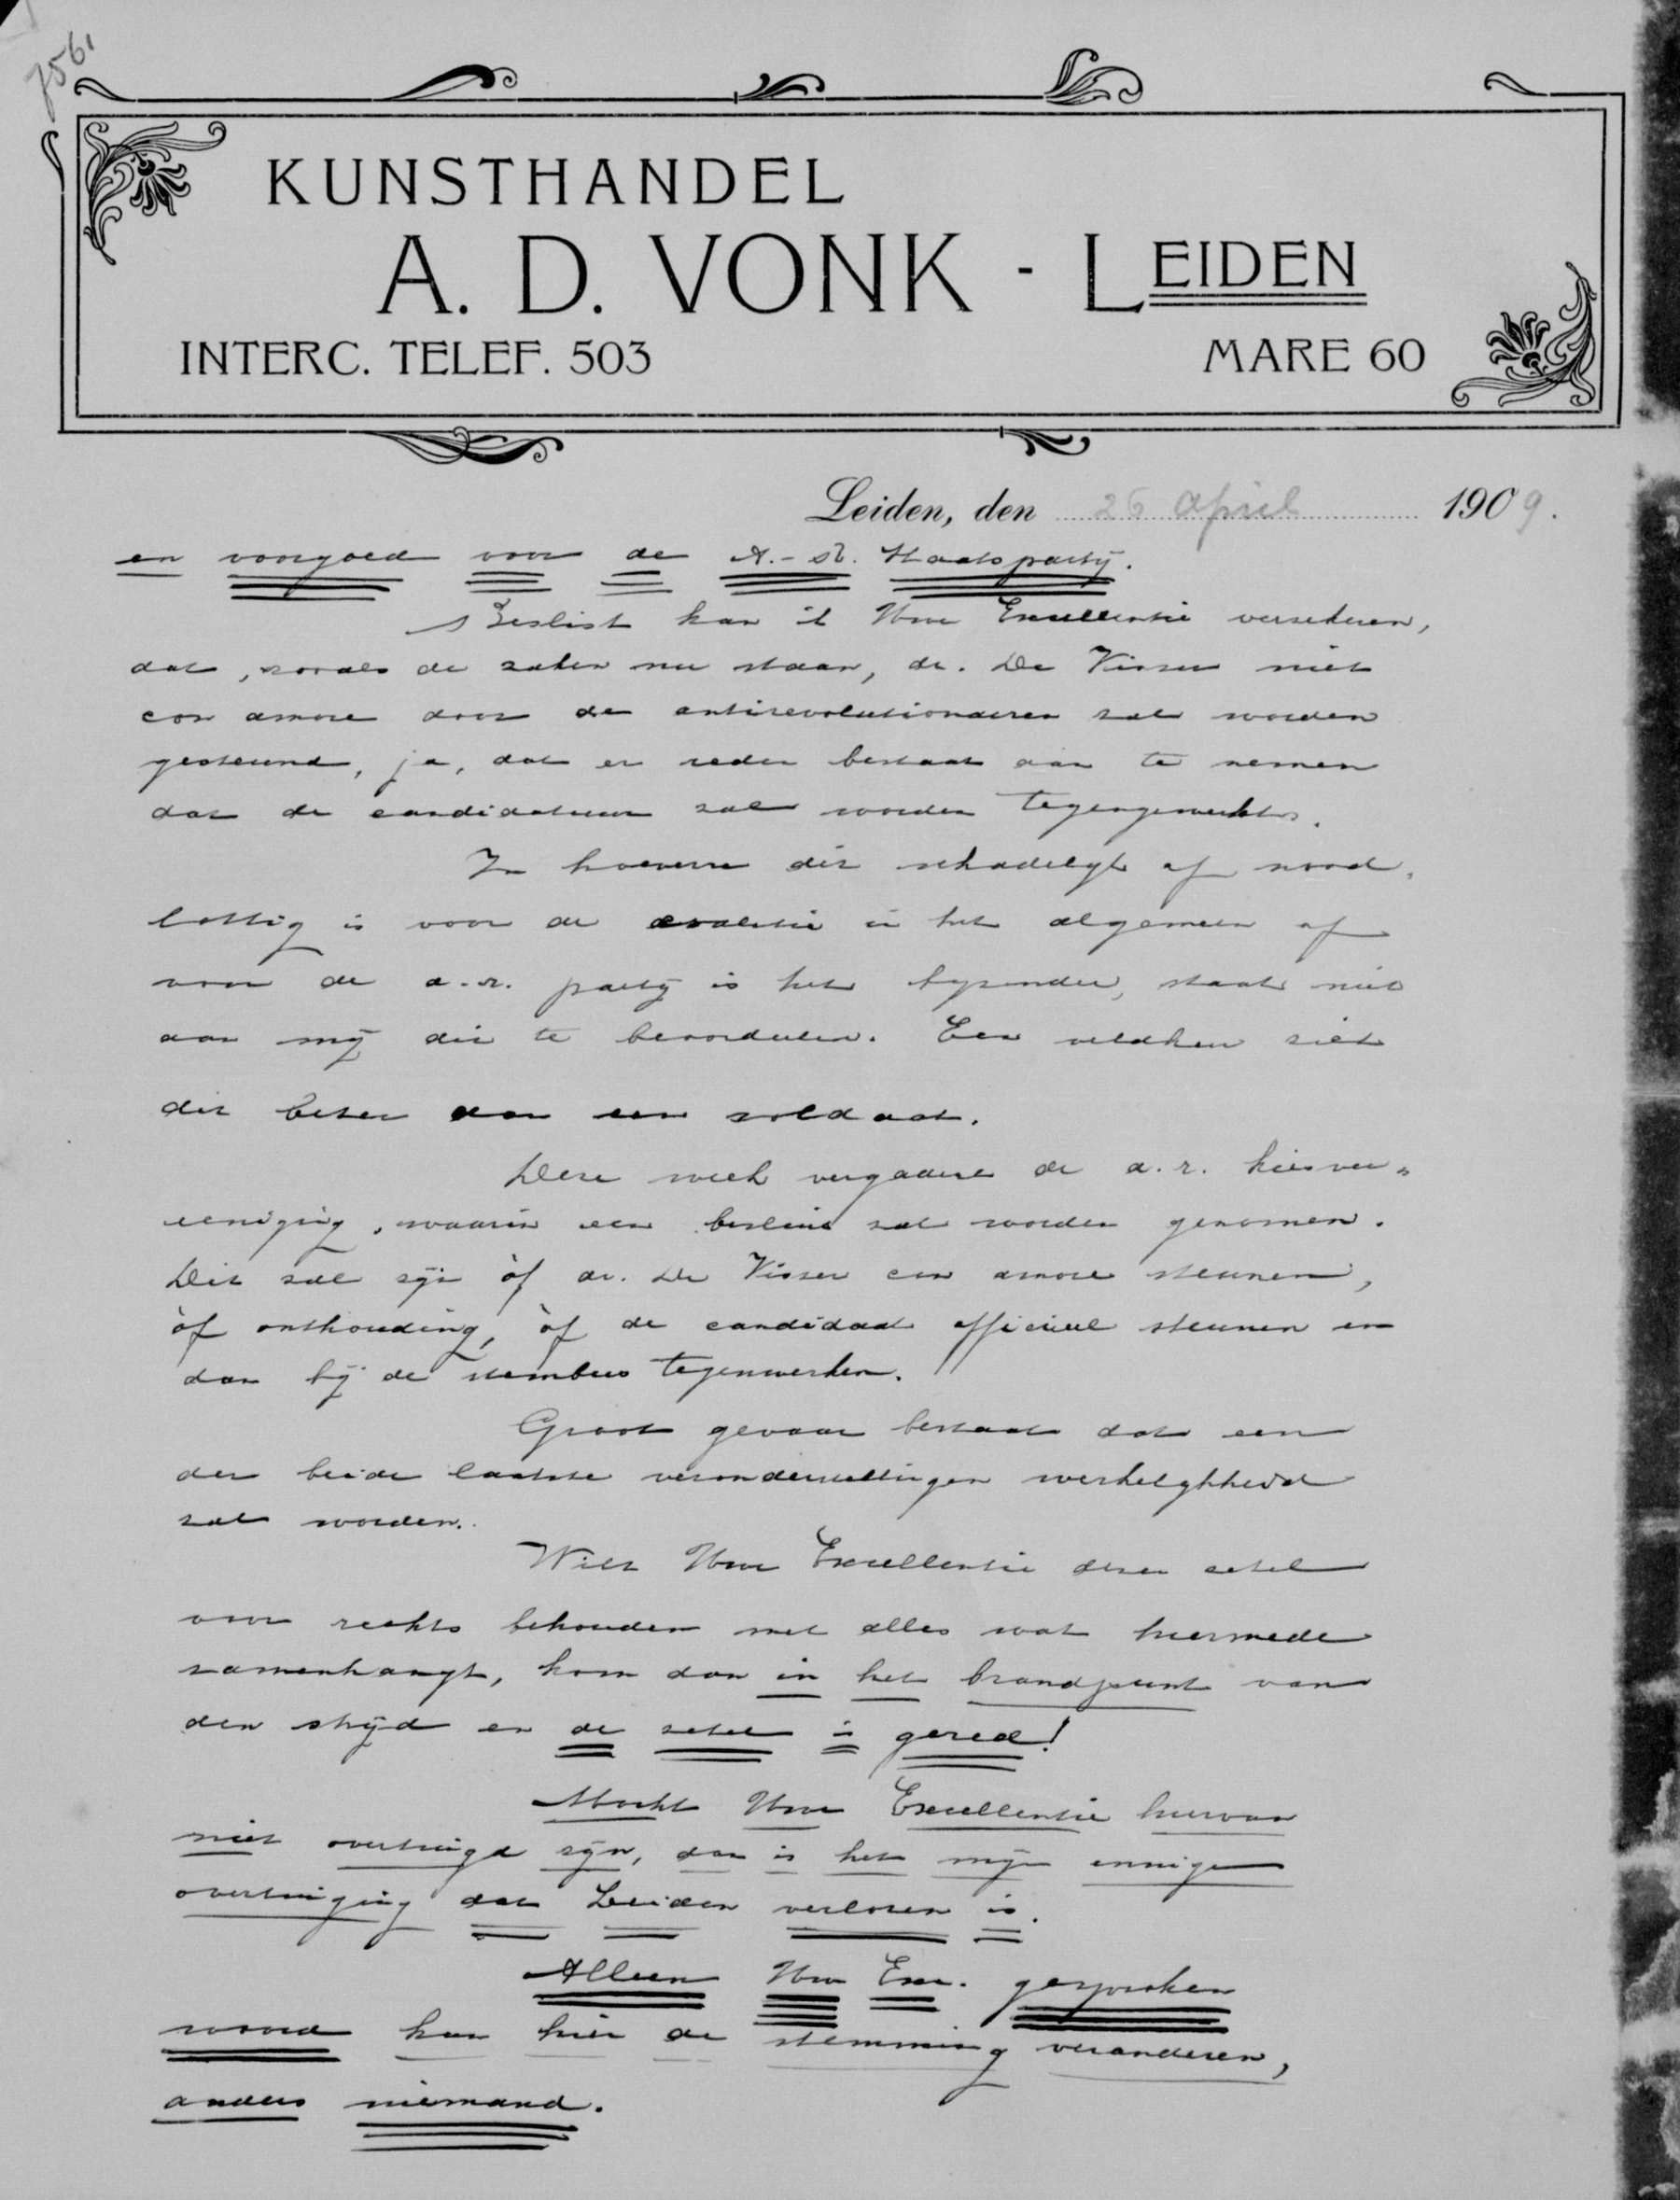 7561
KUNSTHANDEL
A. D. VONK - LEIDEN
INTERC. TELEF. 503 MARE 60
Leiden, den 26 April 1909.
en voorgoed voor de A.-R. Staatspartij.
Beslist kan ik Uwe Excellentie verzekeren,
dat, zooals de zaken nu staan, dr. De Visser niet
con amore door de antirevolutionairen zal worden
gesteund, ja, dat er reden bestaat aan te nemen
dat de candidatuur zal worden tegengewerkt.
In hoeverre dit schadelijk of nood-
lottig is voor de coalitie in het algemeen of
voor de a.r. partij in het byzonder, staat niet
aan mij dit te beoordeelen. Een veldheer ziet
dit beter dan een soldaat.
Deze week vergadert de a.r. kiesver-
eeniging, waarin een besluit zal worden genomen.
Dit zal zijn òf dr. De Visser con amore steunen,
òf onthouding, òf de candidaat officieel steunen en
dan bij de stembus tegenwerken.
Groot gevaar bestaat dat een
der beide laatste veronderstellingen werkelykheid
zal worden.
Wilt Uwe Excellentie dezen zetel
voor rechts behouden met alles wat hiermede
samenhangt, kom dan in het brandpunt van
den strijd en de zetel is gered!
Mocht Uwe Excellentie hiervan
niet overtuigd zijn, dan is het mijn innige
overtuiging dat Leiden verloren is.
Alleen Uw Exc. gesproken
woord kan hier de stemming veranderen,
anders niemand.